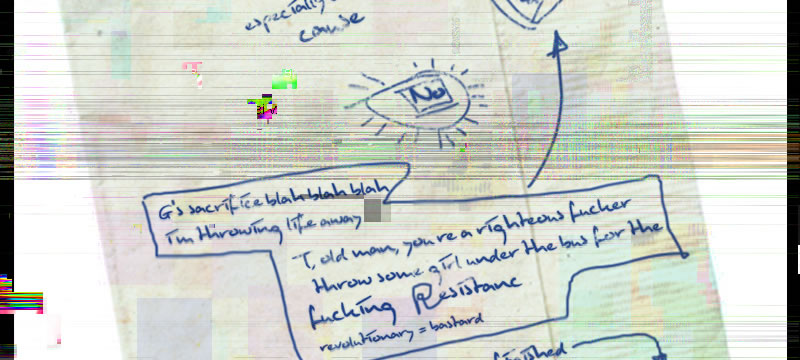 especially
cause
No
G's sacrifice blah blah blah
i'm throwing life away
T, old man, you're a righteous fucker
throw some girl under the bus for the
fucking Resistanc
revolutionary = bastard
finished